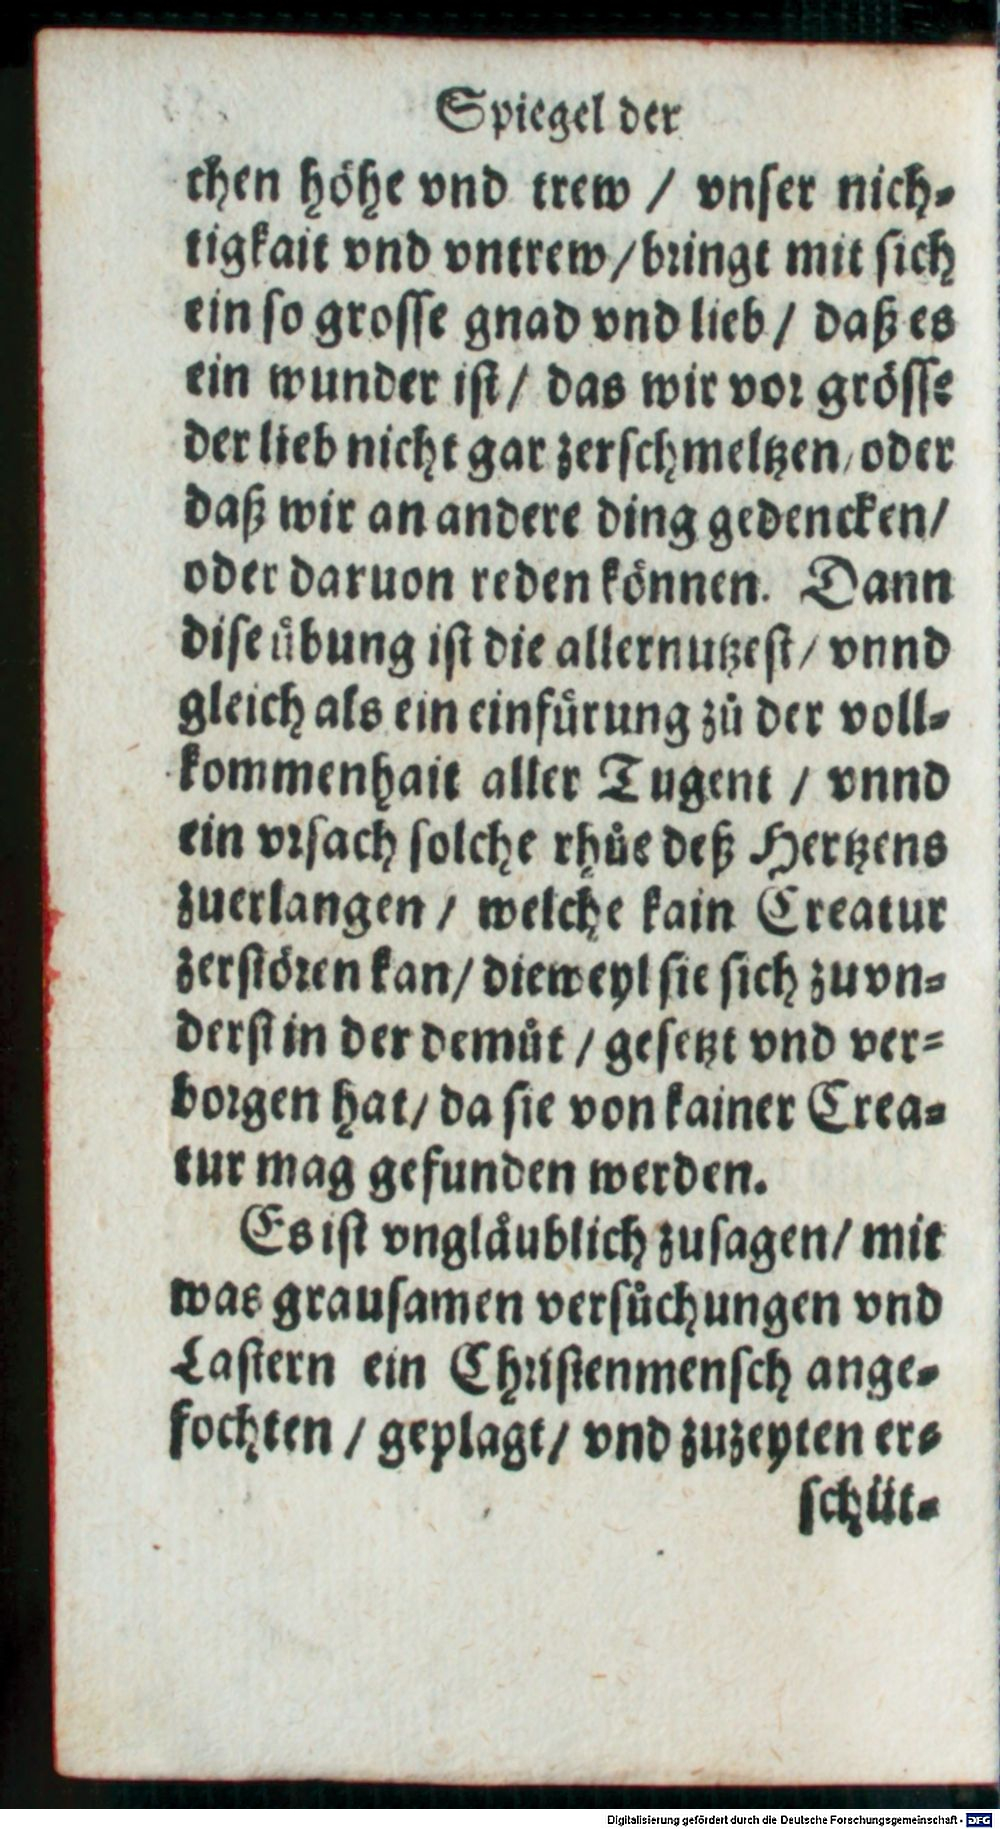 Spiegel der
chen höhe vnd trew / vnser nich-
tigkait vnd vntrew / bringt mit sich
ein so grosse gnad vnd lieb / daß es
ein wunder ist / das wir vor grösse
der lieb nicht gar zerschmeltzen / oder
daß wir an andere ding gedencken /
oder daruon reden können. Dann
dise übung ist die allernutzest / vnnd
gleich als ein einfürung zů der voll-
kommenhait aller Tugent / vnnd
ein vrsach solche rhůe deß Hertzens
zuerlangen / welche kain Creatur
zerstören kan / dieweyl sie sich zu vn-
derst in der demůt / gesetzt vnd ver-
borgen hat / da sie von kainer Crea-
tur mag gefunden werden.
Es ist vngläublich zusagen / mit
was grausamen versůchungen vnd
Lastern ein Christenmensch ange-
fochten / geplagt / vnd zuzeyten er-
schüt-
Digitalisierung gefördert durch die Deutsche Forschungsgemeinschaft - DFG